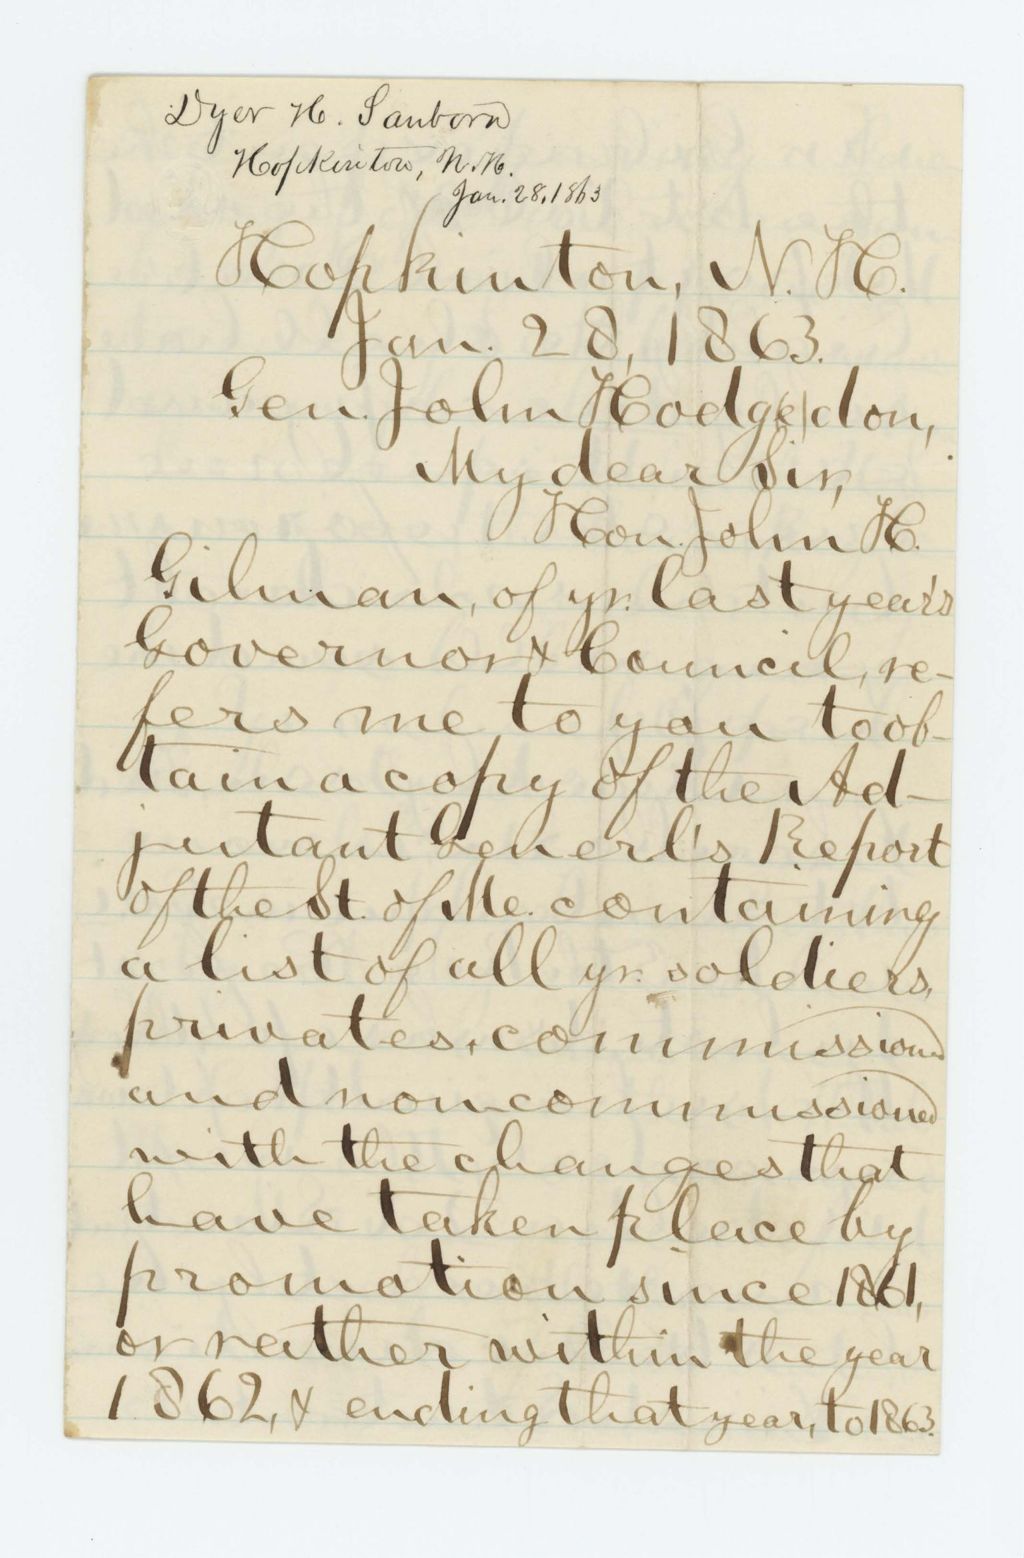 Dyer H. Sanborn
Hopkinton, N.H.
Jan. 28, 1863
Hopkinton, N. H.
Jan. 28, 1863.
Gen. John Hodg(s)don,
My dear Sir,
Hon. John H.
Gilman, of yr. last year's
Governor & Council, re-
fers me to you to ob-
tain a copy of the Ad-
jutant Generl's Report
of the St. of Me. containing
a list of all yr. soldiers,
privates, commissioned
and noncommissioned
with the changes that
have taken place by
promotion since 1861,
or rather within the year
1862, & ending that year, to 1863.